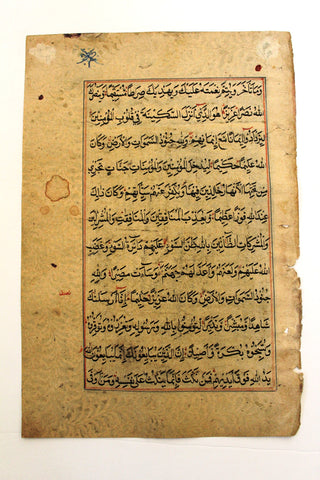 وَمَا تَأَخَّرَ وَيُتِمَّ نِعْمَتَهُ عَلَيْكَ وَيَهْدِيَكَ صِرَاطًا مُسْتَقِيمًا وَيَنْصُرَكَ
اللهُ نَصْرًا عَزِيزًا هُوَ الَّذِي أَنْزَلَ السَّكِينَةَ فِي قُلُوبِ الْمُؤْمِنِينَ
لِيَزْدَادُوا إِيمَانًا مَعَ إِيمَانِهِمْ وَلِلّٰهِ جُنُودُ السَّمٰوَاتِ وَالْأَرْضِ وَكَانَ
اللهُ عَلِيمًا حَكِيمًا لِيُدْخِلَ الْمُؤْمِنِينَ وَالْمُؤْمِنَاتِ جَنَّاتٍ تَجْرِي
مِنْ تَحْتِهَا الْأَنْهَارُ خَالِدِينَ فِيهَا وَيُكَفِّرَ عَنْهُمْ سَيِّئَاتِهِمْ وَكَانَ ذٰلِكَ
عِنْدَ اللهِ فَوْزًا عَظِيمًا وَيُعَذِّبَ الْمُنَافِقِينَ وَالْمُنَافِقَاتِ وَالْمُشْرِكِينَ
وَالْمُشْرِكَاتِ الظَّانِّينَ بِاللهِ ظَنَّ السَّوْءِ عَلَيْهِمْ دَائِرَةُ السَّوْءِ وَغَضِبَ
اللهُ عَلَيْهِمْ وَلَعَنَهُمْ وَأَعَدَّ لَهُمْ جَهَنَّمَ وَسَاءَتْ مَصِيرًا وَلِلّٰهِ
جُنُودُ السَّمٰوَاتِ وَالْأَرْضِ وَكَانَ اللهُ عَزِيزًا حَكِيمًا إِنَّا أَرْسَلْنَاكَ
شَاهِدًا وَمُبَشِّرًا وَنَذِيرًا لِتُؤْمِنُوا بِاللهِ وَرَسُولِهِ وَتُعَزِّرُوهُ وَتُوَقِّرُوهُ
وَتُسَبِّحُوهُ بُكْرَةً وَأَصِيلًا إِنَّ الَّذِينَ يُبَايِعُونَكَ إِنَّمَا يُبَايِعُونَ اللهَ
يَدُ اللهِ فَوْقَ أَيْدِيهِمْ فَمَنْ نَكَثَ فَإِنَّمَا يَنْكُثُ عَلَى نَفْسِهِ وَمَنْ أَوْفَى